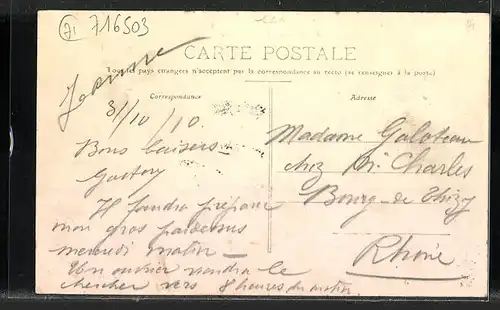 71 716503
CARTE POSTALE
Tous les pays étrangers n'acceptent pas la correspondance au recto (se renseigner à la poste)
Correspondance
Adresse
Jeanne
31/10/10.
Bons baisers
Gaston
Il faudra
mon gros pardessus
mercredi matin
Un ouvrier viendra le
chercher vers 8 heures du matin
Madame
chez Mr. Charles
Bourg-de-Thizy
Rhône